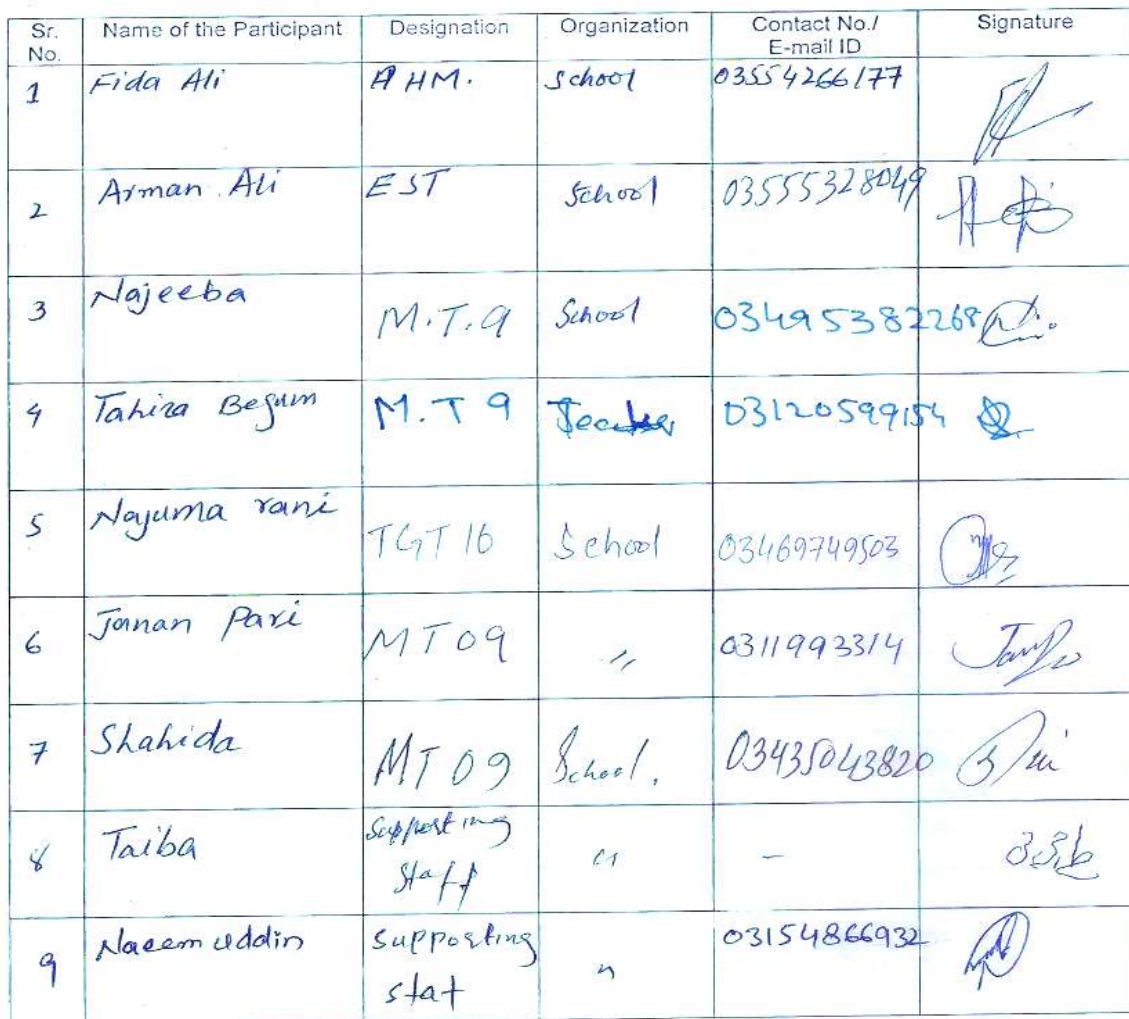 Sr. No. Name of the Participant Designation Organization Contact No./ E-mail ID Signature
1 Fida Ali AHM. School 03554266177
2 Arman Ali EST School 03555328049
3 Najeeba M.T.9 School 03495382268
4 Tahira Begum M.T 9 Teacher 03120599154
5 Najuma rani TGT 16 School 03469749503
6 Janan Pari MT09 〃 0311993314
7 Shahida MT 09 School. 03435043820
8 Taiba Supporting Staff 〃 –
9 Naeem uddin Supporting stat 〃 03154866932